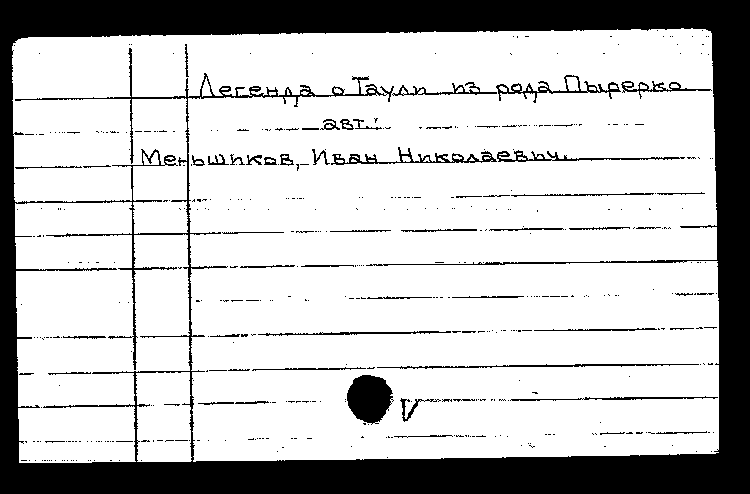 Легенда о Таули из рода Пырерко
авт.:
Меньшиков, Иван Николаевич.
V